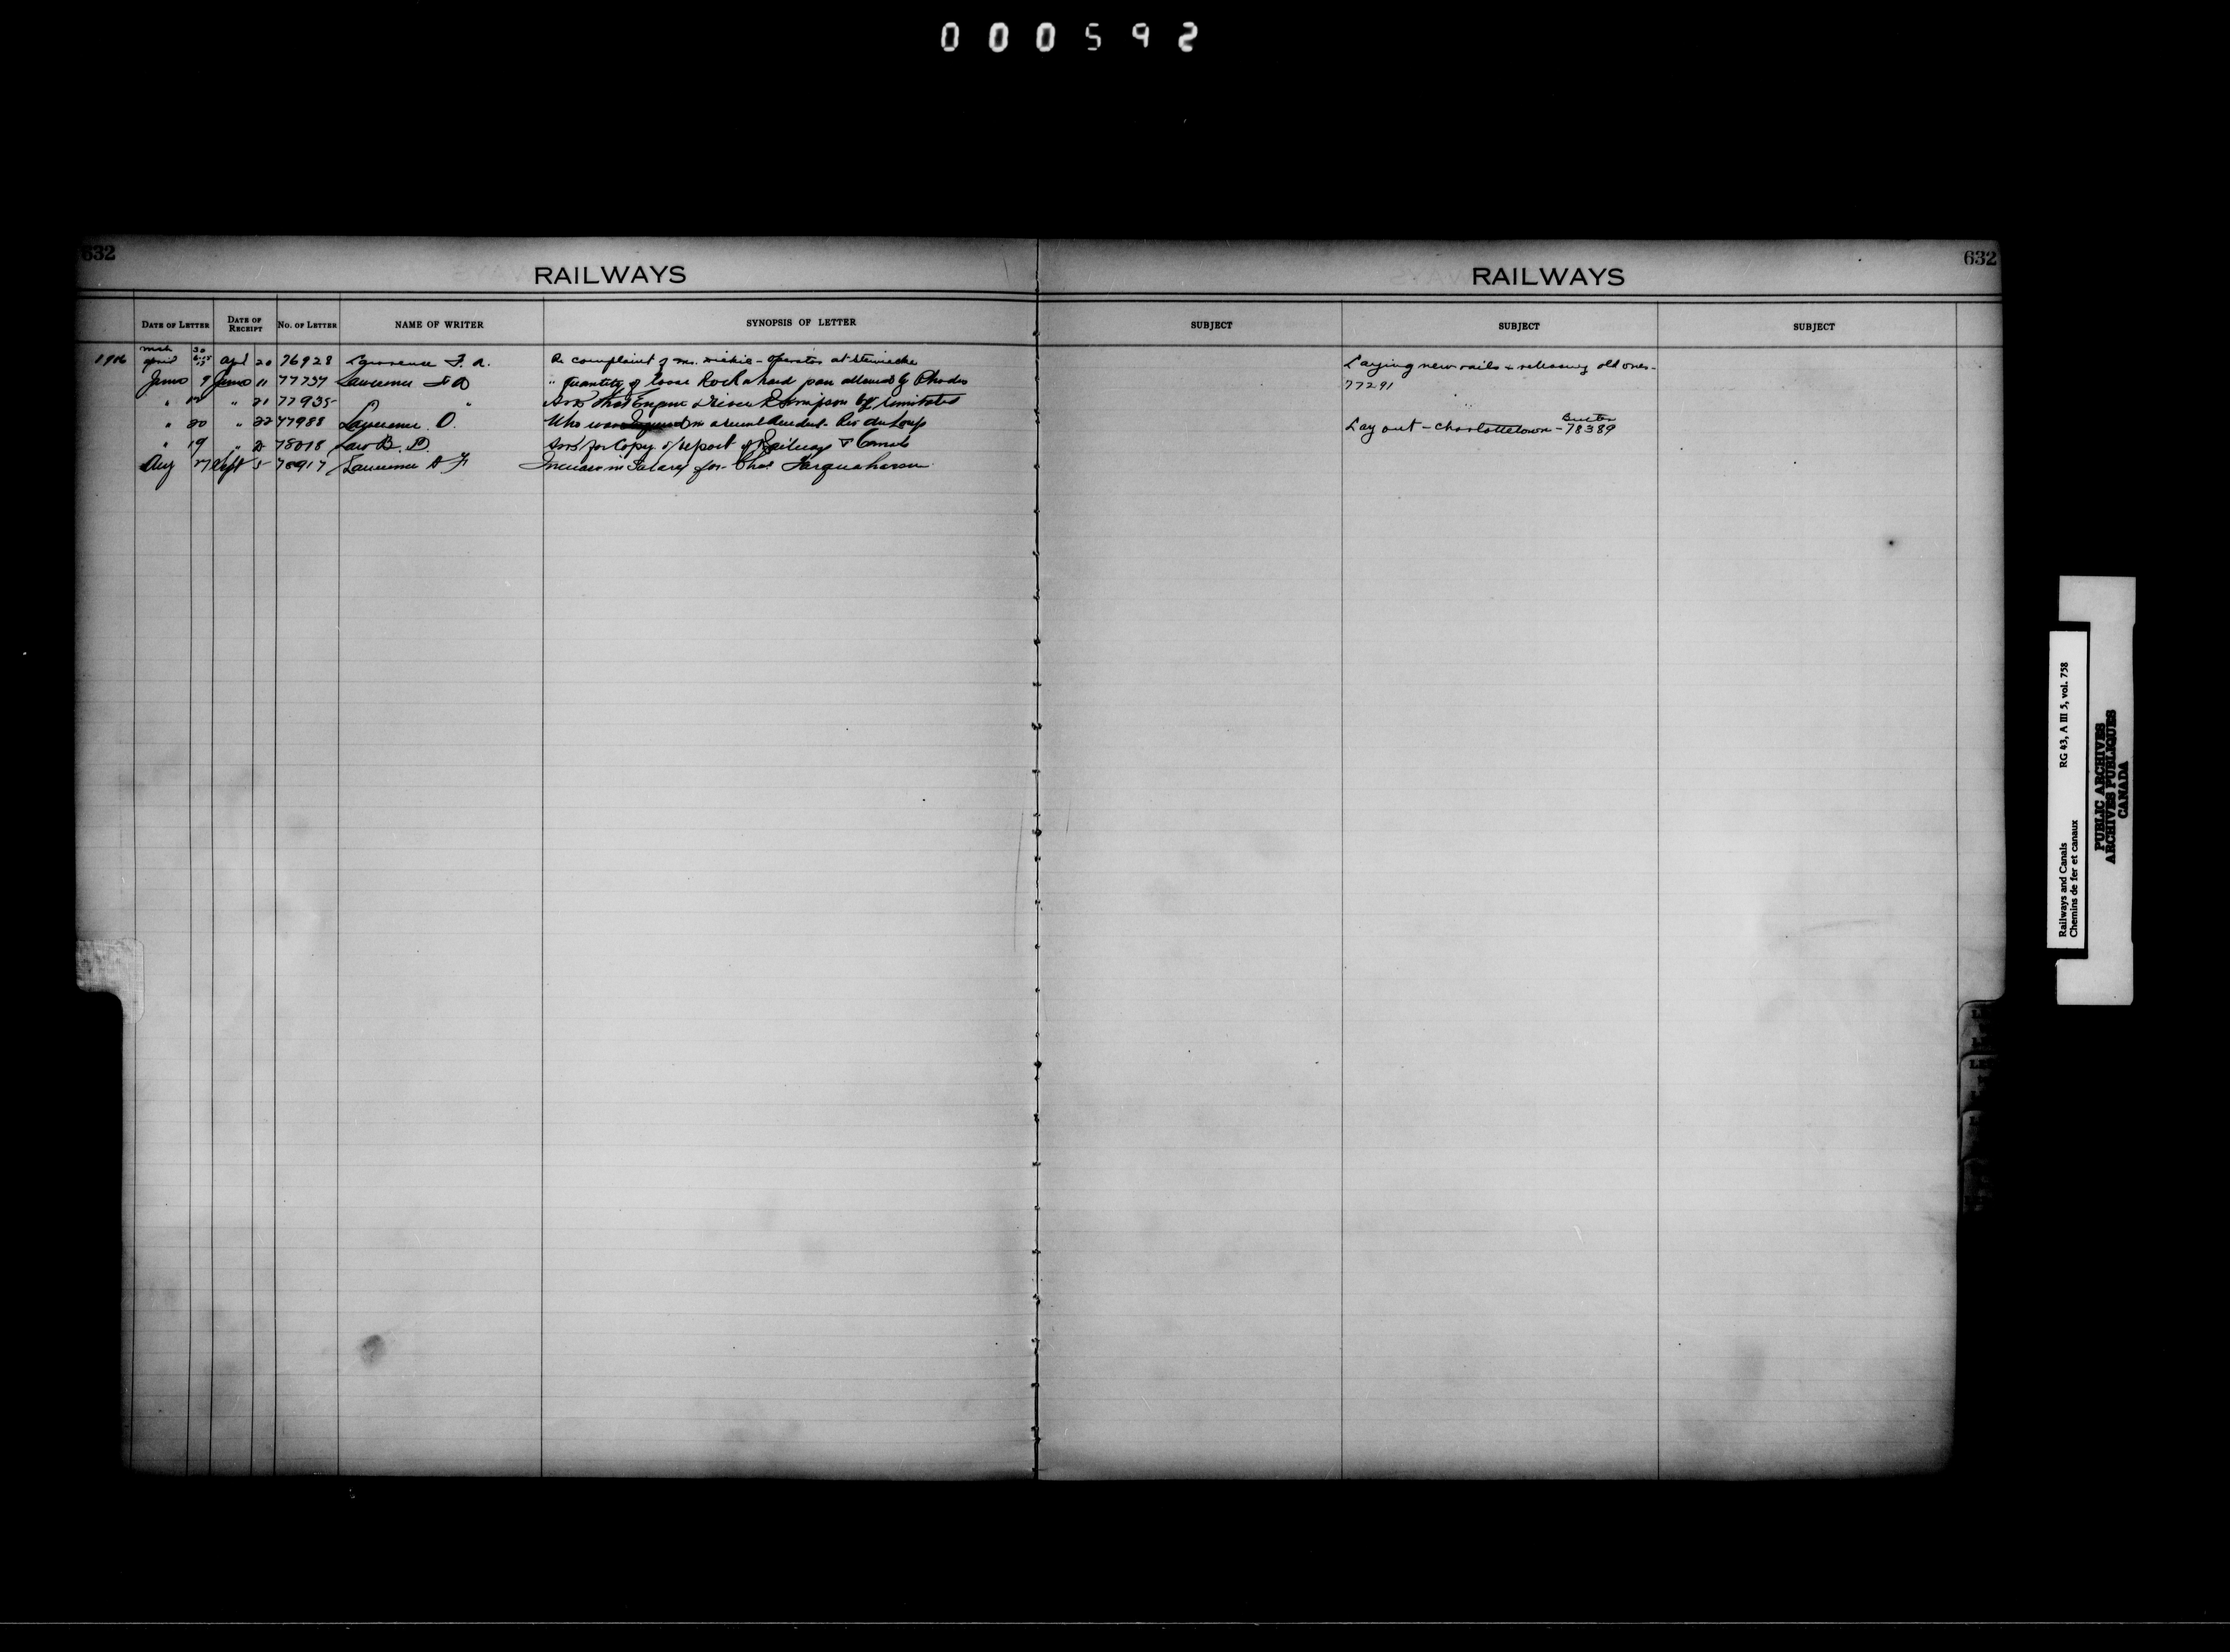 000592
632
RAILWAYS
DATE OF LETTER DATE OF RECEIPT No. OF LETTER NAME OF WRITER SYNOPSIS OF LETTER
1906 April 20 76928 Lawrence F. A. Re complaint of operator at Stewiacke
June 9 June 11 77737 Lawrence F A " Quantity of loose Rock & hard pan allowed by Rhodes
" " 21 77935 " Ask that Engine Driver R Simpson be reinstated
" 20 " 22 77988 Lawrence O. Who was in recent accident Riv du Loup
" 19 " 78018 Law B. D. Ask for Copy of report of Railways & Canals
Aug 27 Sept 5 78917 Lawrence A F Increase in Salary for Chas Farquharson
632
RAILWAYS
SUBJECT SUBJECT SUBJECT
Laying new rails & releasing old ones-
77291
Lay out - Charlottetown - 78389
Railways and Canals RG 43, A III 5, vol. 758
Chemins de fer et canaux
PUBLIC ARCHIVES
ARCHIVES PUBLIQUES
CANADA